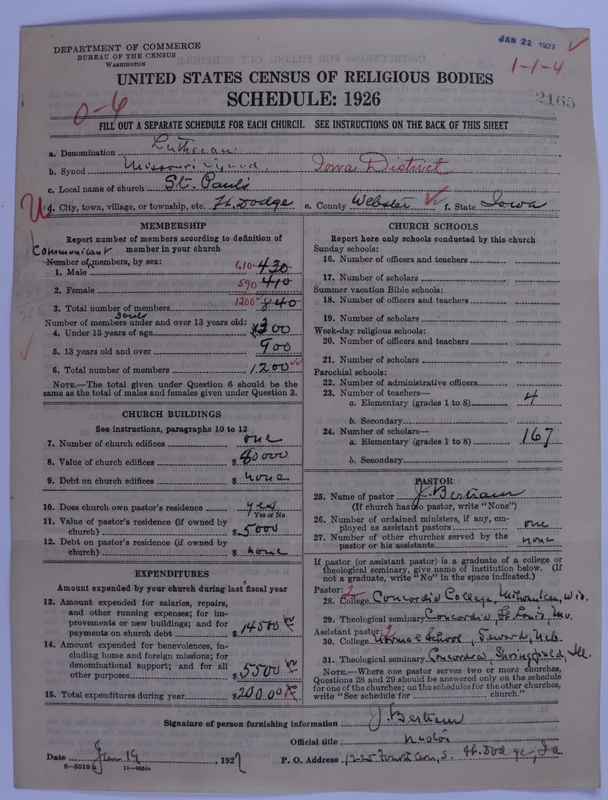 DEPARTMENT OF COMMERCE
BUREAU OF THE CENSUS
WASHINGTON
JAN 22 1927
1-1-4
UNITED STATES CENSUS OF RELIGIOUS BODIES
SCHEDULE: 1926
0-6
2165
FILL OUT A SEPARATE SCHEDULE FOR EACH CHURCH. SEE INSTRUCTIONS ON THE BACK OF THIS SHEET
a. Denomination Lutheran
b. Synod Missouri Synod Iowa District
c. Local name of church St. Paul's
d. City, town, village, or township, etc. Ft. Dodge e. County Webster f. State Iowa
MEMBERSHIP
Report number of members according to definition of member in your church
Communicant
Number of members, by sex:
1. Male 610 430
2. Female 590 410
3. Total number of members 1200 840
Souls
Number of members under and over 13 years old:
4. Under 13 years of age 300
5. 13 years old and over 900
6. Total number of members 1200
NOTE.—The total given under Question 6 should be the same as the total of males and females given under Question 3.
CHURCH BUILDINGS
See instructions, paragraphs 10 to 12
7. Number of church edifices one
8. Value of church edifices $ 80000
9. Debt on church edifices $ none
10. Does church own pastor's residence? yes
Yes or No
11. Value of pastor's residence (if owned by church) $ 5000
12. Debt on pastor's residence (if owned by church) $ none
EXPENDITURES
Amount expended by your church during last fiscal year
13. Amount expended for salaries, repairs, and other running expenses; for improvements or new buildings; and for payments on church debt $ 14500
14. Amount expended for benevolences, including home and foreign missions; for denominational support; and for all other purposes $ 5500
15. Total expenditures during year $ 20000
CHURCH SCHOOLS
Report here only schools conducted by this church
Sunday schools:
16. Number of officers and teachers
17. Number of scholars
Summer vacation Bible schools:
18. Number of officers and teachers
19. Number of scholars
Week-day religious schools:
20. Number of officers and teachers
21. Number of scholars
Parochial schools:
22. Number of administrative officers
23. Number of teachers—
a. Elementary (grades 1 to 8) 4
b. Secondary
24. Number of scholars—
a. Elementary (grades 1 to 8) 167
b. Secondary
PASTOR
25. Name of pastor J. Bertram
(If church has no pastor, write "None")
26. Number of ordained ministers, if any, employed as assistant pastors one
27. Number of other churches served by the pastor or his assistants none
If pastor (or assistant pastor) is a graduate of a college or theological seminary, give name of institution below. (If not a graduate, write "No" in the space indicated.)
Pastor: 2
28. College Concordia College, Milwaukee, Wis.
29. Theological seminary Concordia, St. Louis, Mo.
Assistant pastor: 2
30. College Normal School, Seward, Neb.
31. Theological seminary Concordia, Springfield, Ill.
NOTE.—Where one pastor serves two or more churches, Questions 28 and 29 should be answered only on the schedule for one of the churches; on the schedules for the other churches, write "See schedule for church."
Signature of person furnishing information J. Bertram
Official title Pastor
Date Jan 19, 1927 P. O. Address Fourth Ave, S. Ft. Dodge, Ia